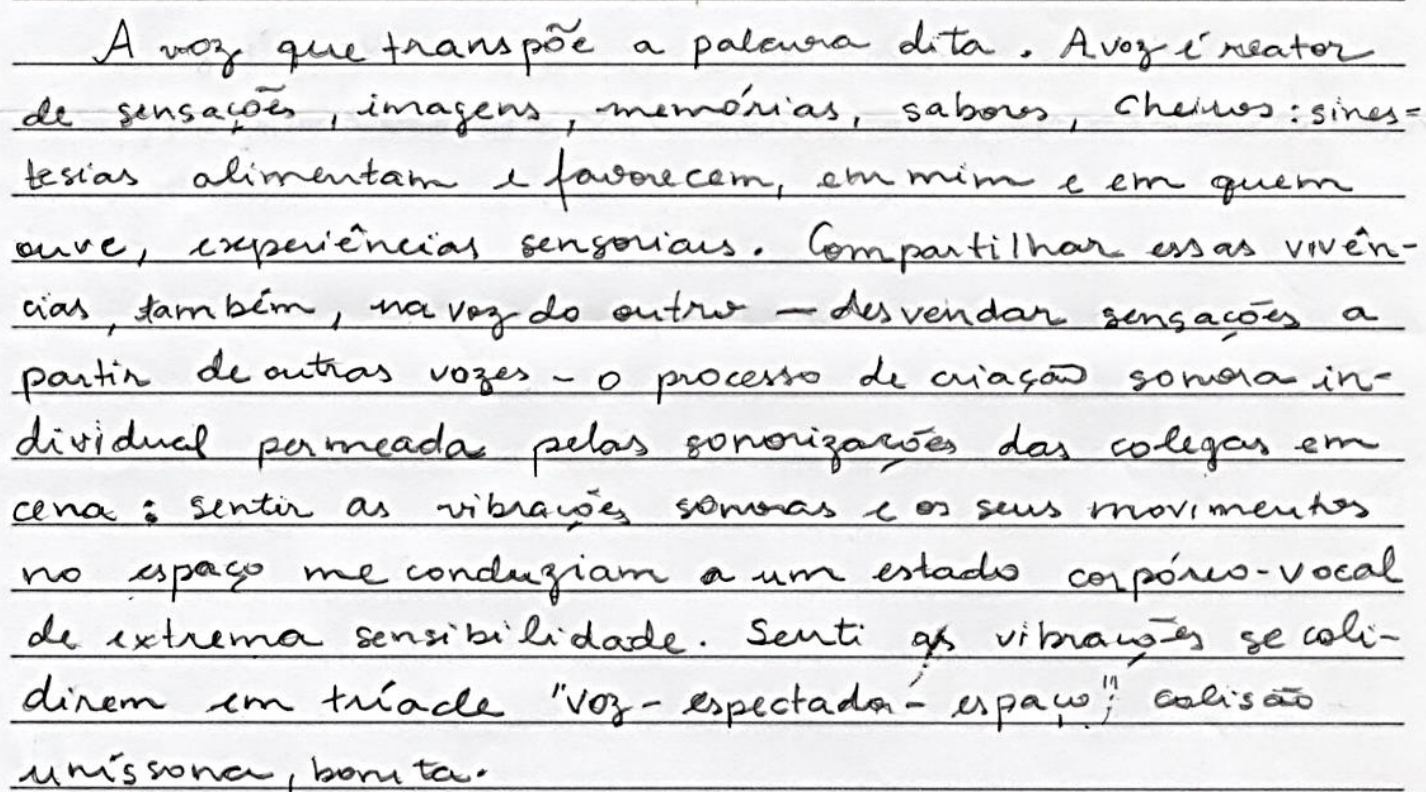 A voz que transpõe a palavra dita. A voz é reator
de sensações, imagens, memórias, sabores, cheiros: sines=
tesias alimentam e favorecem, em mim e em quem
ouve, experiências sensoriais. Compartilhar essas vivên-
cias, também, na voz do outro - desvendar sensações a
partir de outras vozes - o processo de criação sonora in-
dividual permeada pelas sonorizações das colegas em
cena: sentir as vibrações sonoras e os seus movimentos
no espaço me conduziam a um estado corpóreo-vocal
de extrema sensibilidade. Senti as vibrações se coli-
direm em tríade "voz-espectador-espaço"; colisão
uníssona, bonita.